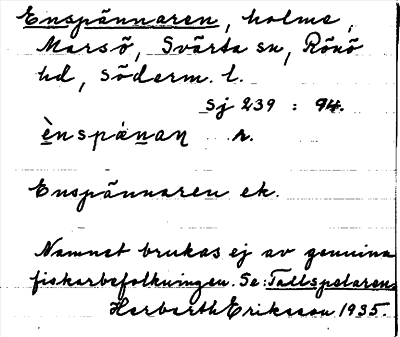 Enspännaren, holme,
Marsö, Svärta sn, Rönö
hd, Söderm. l.
Sj 239 : 94.
ènspánan r.
Enspännaren ek.
Namnet brukas ej av genuina
fiskarbefolkningen. Se: Tallspelaren.
Herbarth Eriksson 1935.